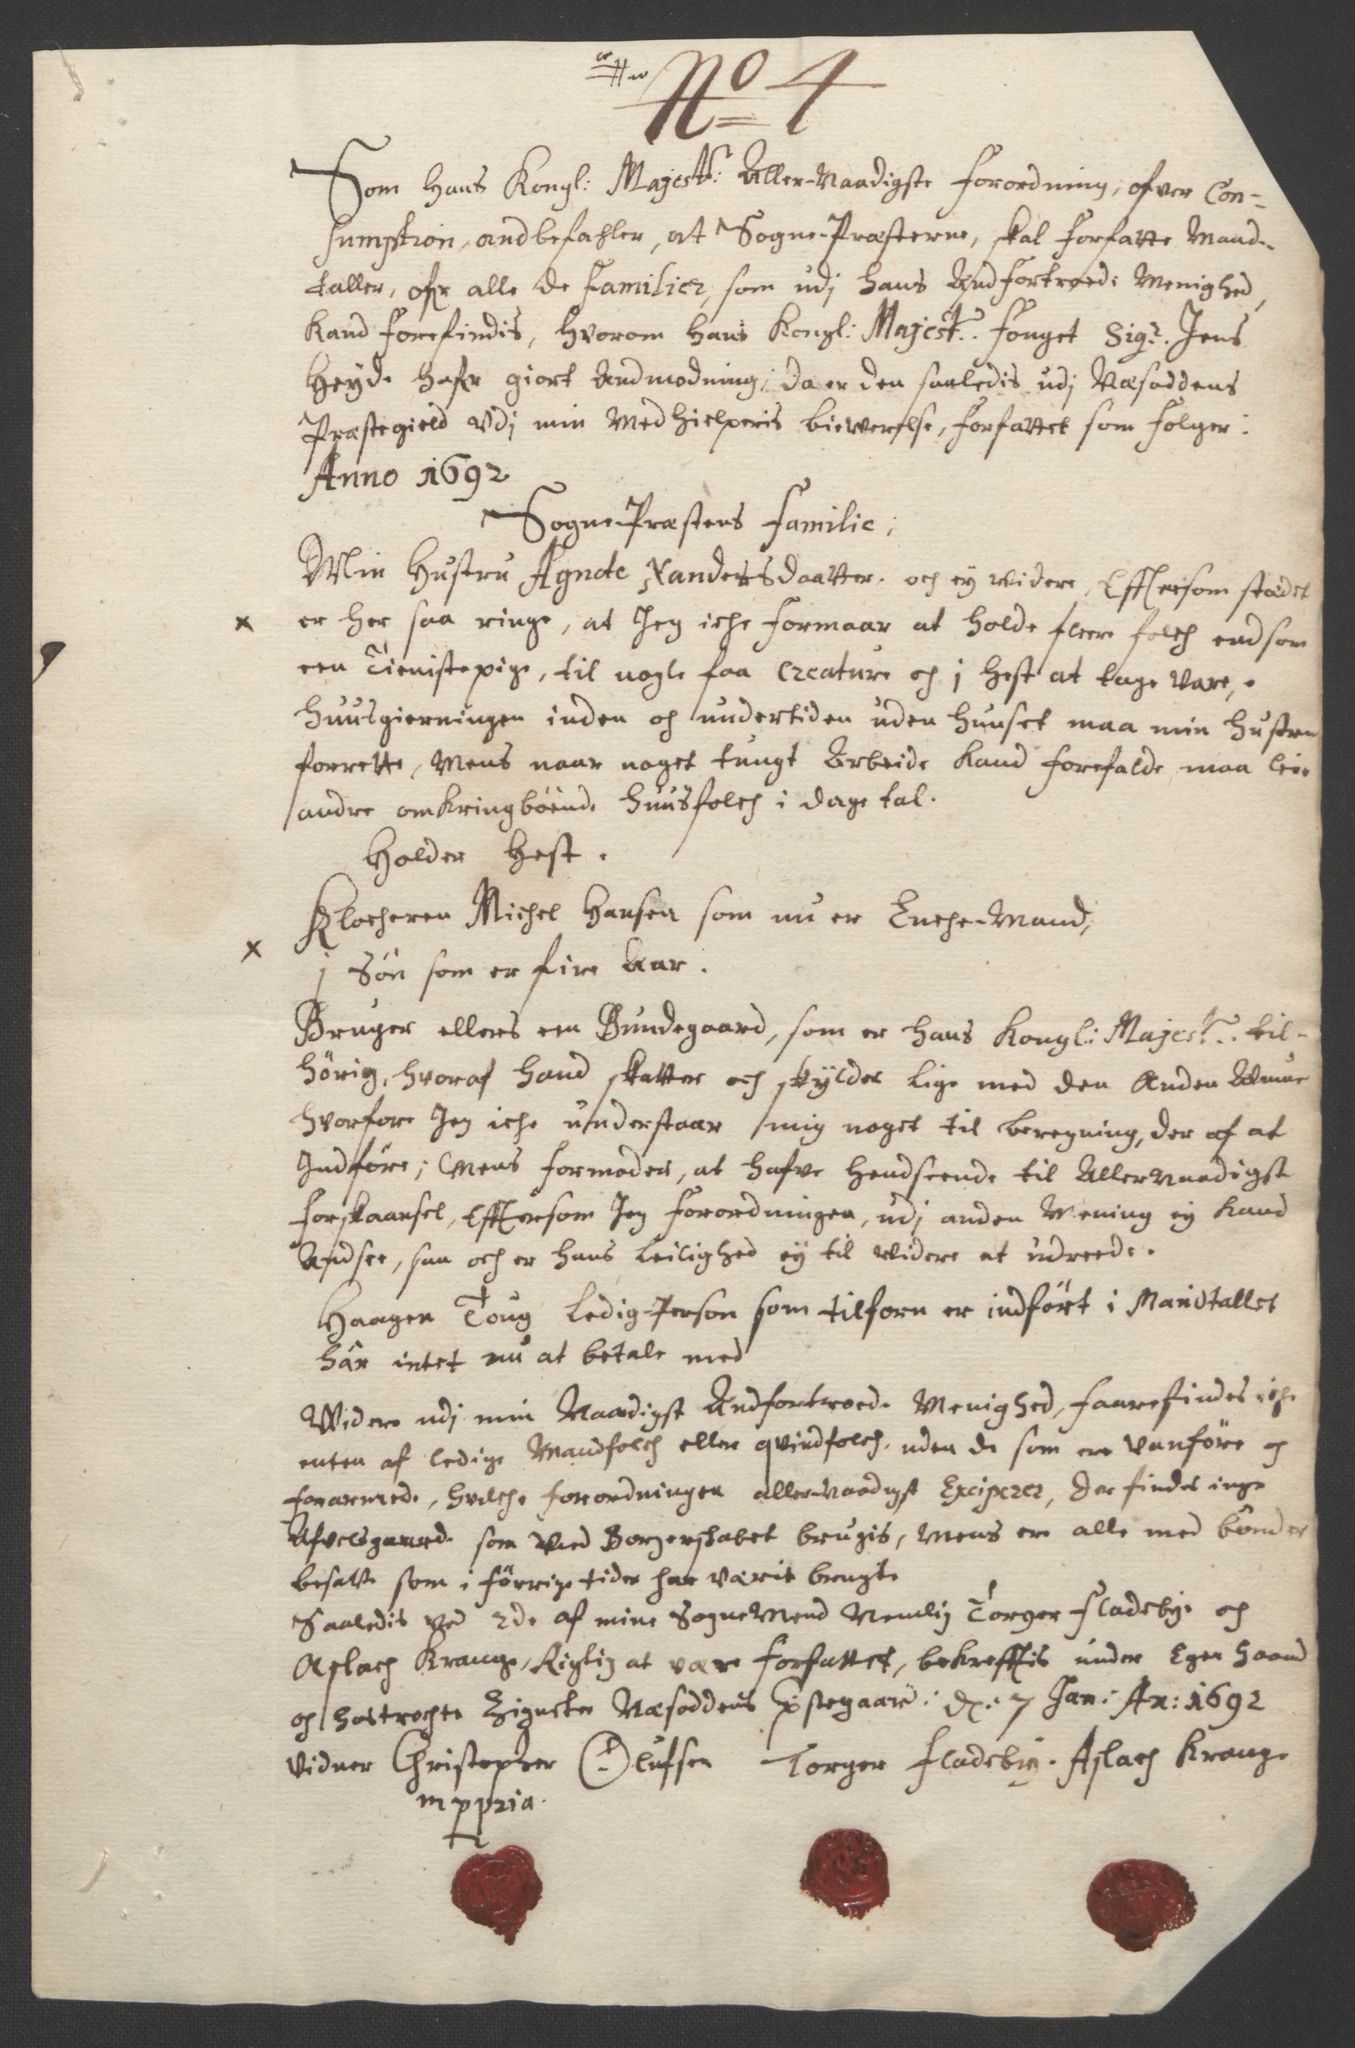 No 4
Som Hans Kongl: Majestts: Aller-Naadigste forordning, ofver Con-
sumption, andbefahler, at Sogne-Præsterne, skal forfatte Mand-
taller, ofr alle de Familier, som udj hans Andfortroede Menighed,
Kand forefindis, hvorom Hans Kongl: Majestts. fouget Sigr. Jens
Heyde hafr giort Andmodning; da er den saaledis udj Næsoddens
Præstegield vdj min Medhielperis biewerelse, forfattet som følger:
Anno 1692
Sogne-Præstens Familie;
Min Hustru Agnete Xandersdaatter. och ey widere, Efftersom stædet
er her saa ringe, at Jeg iche formaar at holde fleere folch end som
een Tienistepige, til nogle faa Creature och j Hest at tage vare,
huusgierningen inden och undertiden uden huuset maa min Hustru
forrette, Mens naar noget tungt Arbeide kand forefalde maa leie
andre omkringboende huusfolch i dage tal.
Holder Hest.
Klocheren Michel Hansen som nu er Enche-Mand,
j Søn som er fire Aar.
Bruger ellers een Bundegaard, som er hans Kongl: Majestts. til-
hörig, hvoraf hand skatter och skÿlder lige med den Anden Almue
hvorfore Jeg iche understaar mig noget til beregning, der af at
Indføre; Mens formoder, at hafve Hendseende til Allernaadigst
forskaansel, Efftersom Jeg forordningen, udj anden Mening ey kand
Andsee, saa och er hans Leilighed eÿ til widere at udreede.
Haagen Toug Ledig-Person som tilforn er indført i Mandtallet
hár intet nu at betale med
Widere udj min Naadigst Andfortroede Menighed, faarefindes iche
enten af ledige Mandfolch eller qvindfolch, uden de som ere Vanføre og
forarmede, hvilche forordningen allernaadigst Exciperer, Der findes inge
Afvelsgaarde som ved Borgerskabet brugis, Mens ere alle med bønder
besatte som i førrige tider har været brugt.
Saaledis ved 2de af mine SogneMend Nemlig Torger Fladebye och
Aslach Krange, Rigtig at være forfattet, bekrefftis under Egen haand
och hostrøchte Zigneter Næsoddens Prestegaard: d. 7 Jan: An: 1692
vidner Christopher Olufsen Torger Fladebÿ. Aslach Krange
mppria.